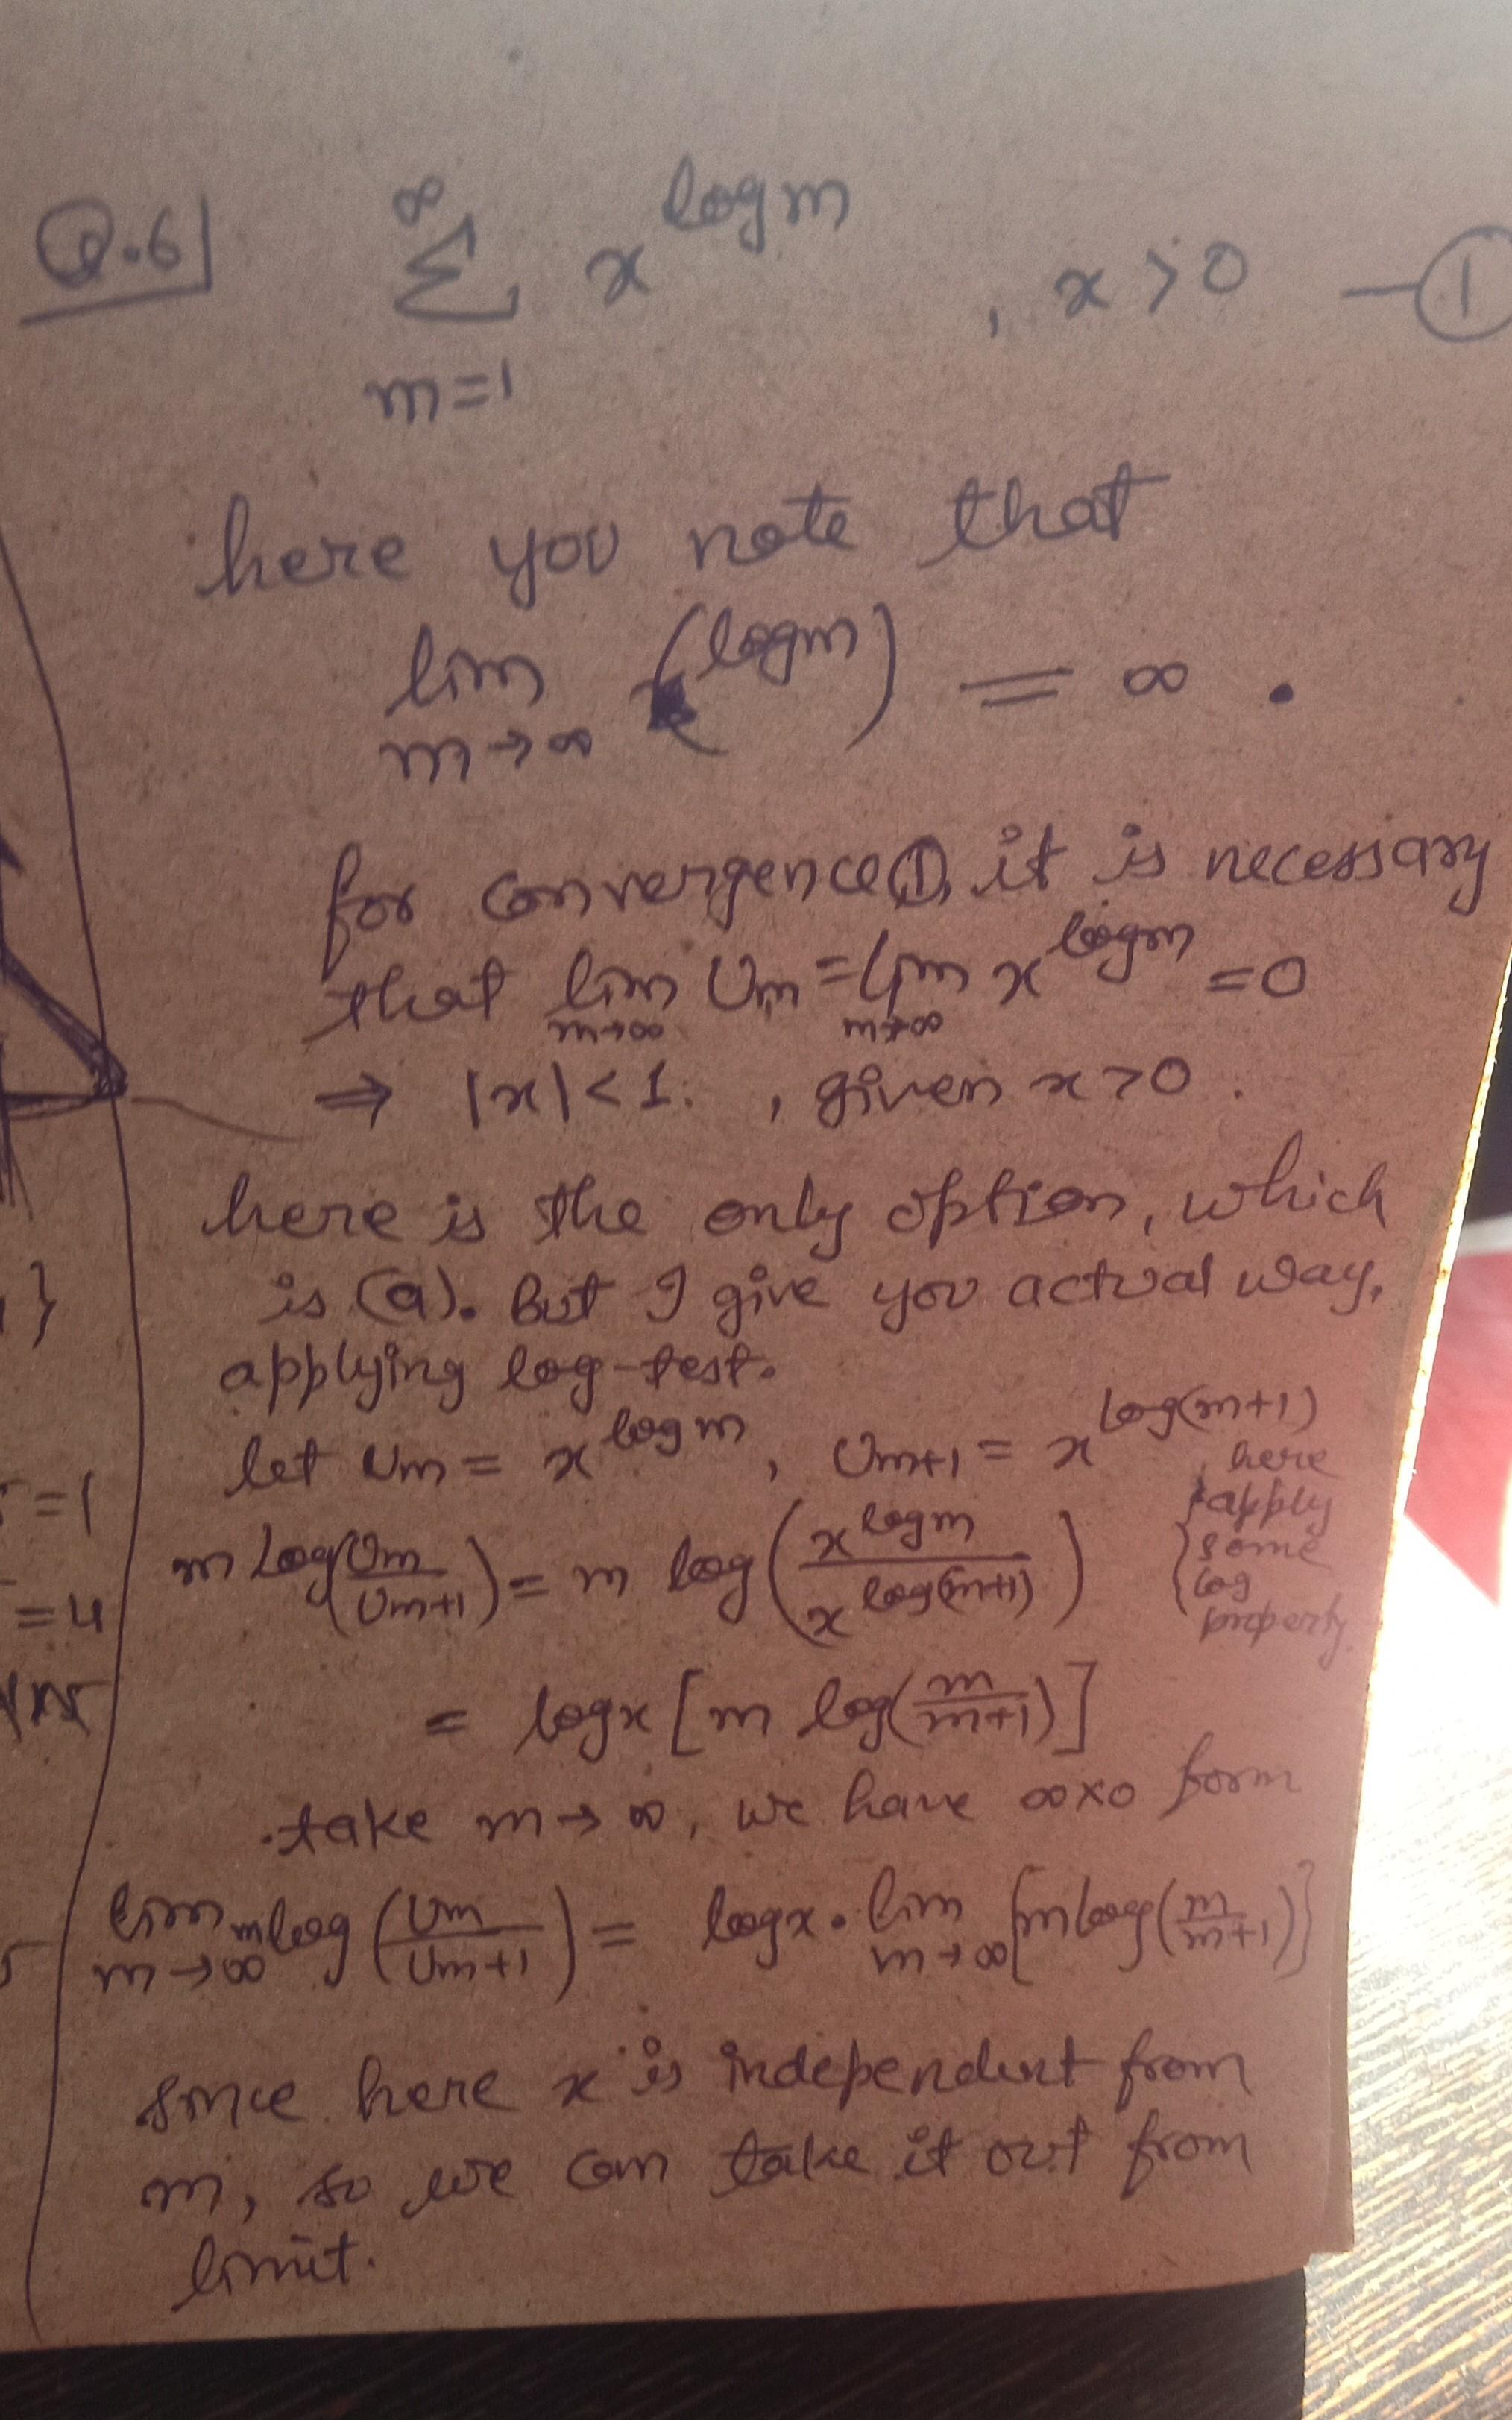 Q.6] ∞ Σ m=1 x^{log m} , x > 0 — ①
here you note that
lim m→∞ (log m) = ∞ .
for convergence ①, it is necessary
that lim m→∞ Um = lim m→∞ x^{log m} = 0
⇒ |x| < 1. , given x > 0 .
here is the only option, which
is (a). But I give you actual way,
applying log-test.
let Um = x^{log m} , Um+1 = x^{log(m+1)}
m log(Um/Um+1) = m log(x^{log m}/x^{log(m+1)}) { here apply some log property
= log x [m log(m/m+1)]
take m → ∞, we have ∞×0 form
lim m→∞ m log(Um/Um+1) = log x • lim m→∞ {m log(m/m+1)}
since here x is independent from
m, so we can take it out from
limit.
}
=1
=4